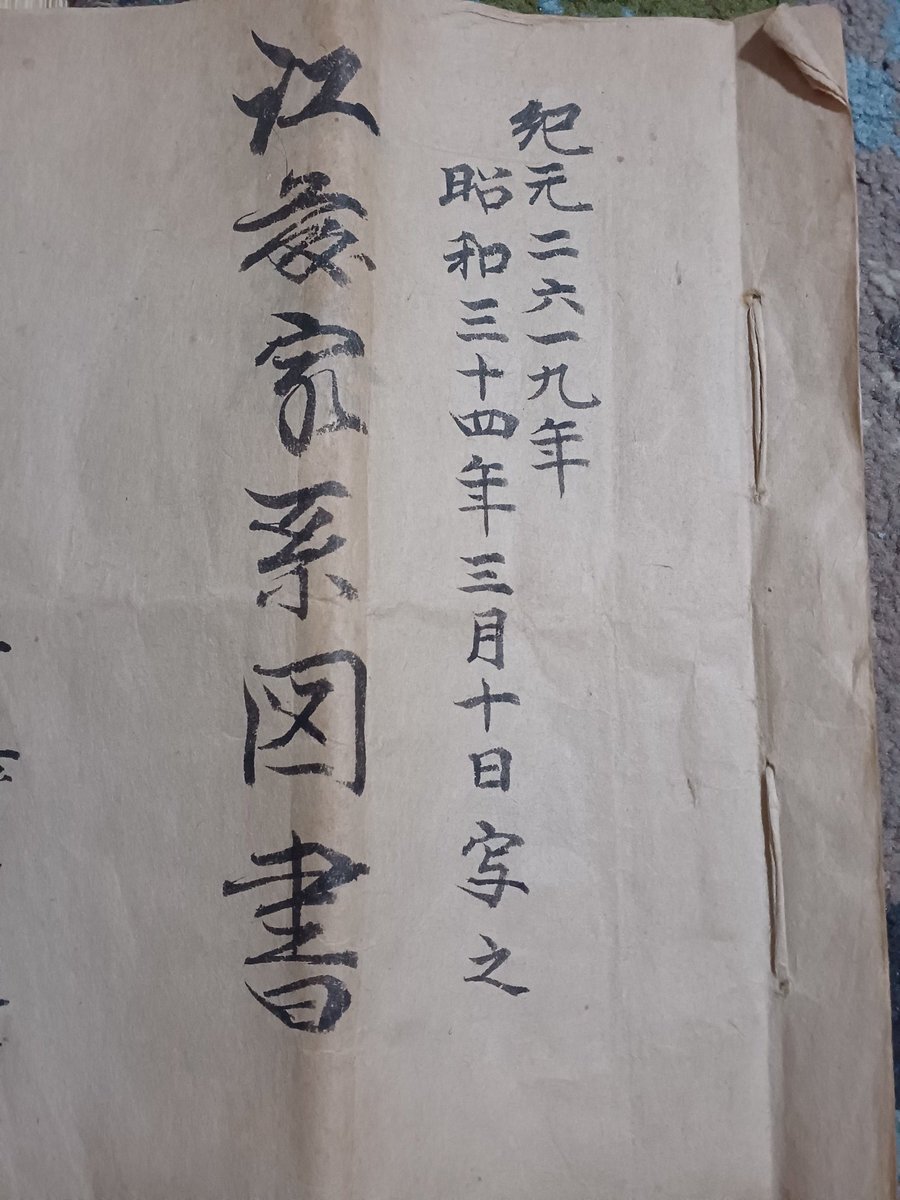 紀元二六一九年
昭和三十四年三月十日写之
江家系図書